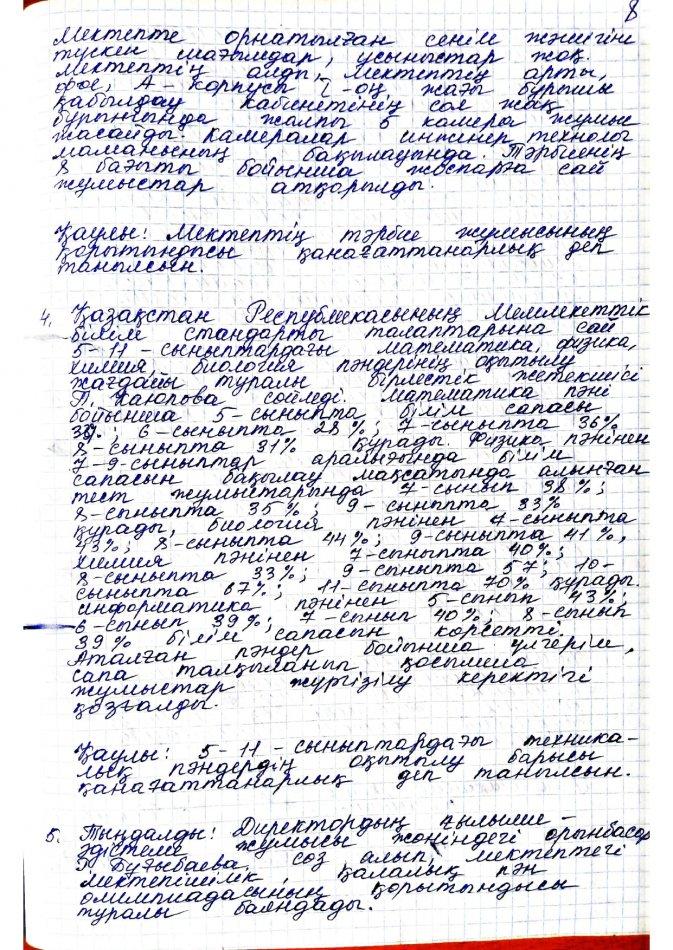 8
Мектепте орнатылған сенім жәшігіне
түскен шағымдар, ұсыныстар жоқ.
Мектептің алды, мектептің арты,
фое, А- корпусы 2-оң жағы бұрышы
қабылдау кабинетінің сол жақ
бұрышында жалпы 5 камера жұмыс
жасайды. Камералар инженер технолог
маманының бақылауында. Тәрбиенің
8 бағыты бойынша жоспарға сай
жұмыстар атқарылды.
Қаулы: Мектептің тәрбие жұмысының
қорытындысы қанағаттанарлық деп
танылсын.
4. Қазақстан Республикасының Мемлекеттік
білім стандарты талаптарына сай
5-11-сыныптардағы математика, физика,
химия, биология пәндерінің оқытылу
жағдайы туралы бірлестік жетекшісі
сөйледі. Математика пәні
бойынша 5-сыныпта білім сапасы
; 6-сыныпта 28%; 7-сыныпта 36%
8-сыныпта 31% құрады. Физика пәнінен
7-9-сыныптар аралығында білім
сапасын бақылау мақсатында алынған
тест жұмыстарында 7-сынып 38%;
8-сыныпта 35%; 9-сыныпта 33%
құрады, биология пәнінен 7-сыныпта
43%; 8-сыныпта 44%; 9-сыныпта 41%,
химия пәнінен 7-сыныпта 40%;
8-сыныпта 33%; 9-сыныпта 57; 10-
сыныпта 67%; 11-сыныпта 70% құрады.
информатика пәнінен 5-сынып 43%;
6-сынып 39%; 7-сынып 40%; 8-сынып
39% білім сапасын көрсетті.
Аталған пәндер бойынша үлгерім,
сапа талқыланып қосымша
жұмыстар жүргізілу керектігі
қозғалды.
Қаулы: 5-11-сыныптардағы техника-
лық пәндердің оқытылу барысы
қанағаттанарлық деп танылсын.
5. Тыңдалды: Директордың ғылыми-
әдістеме жұмысы жөніндегі орынбасар
Бұғыбаева сөз алып, мектептегі
мектепішілік, қалалық пән
олимпиадасының қорытындысы
туралы баяндады.